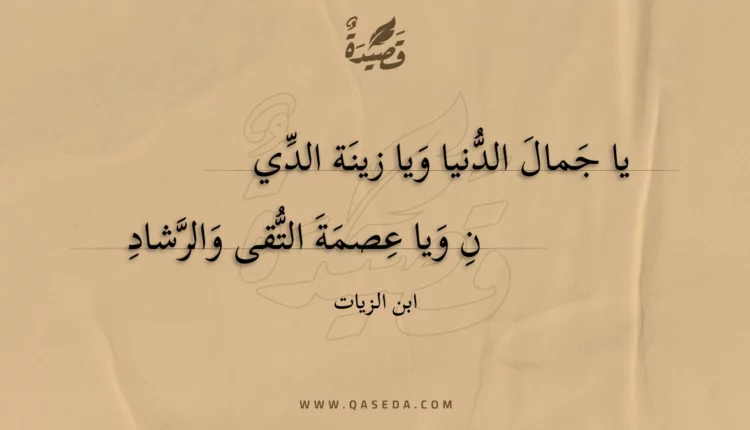 قَصِيدَةٌ
يا جَمالَ الدُّنيا وَيا زينَة الدِّي
نِ وَيا عِصمَةَ التُّقى وَالرَّشادِ
ابن الزيات
WWW.QASEDA.COM